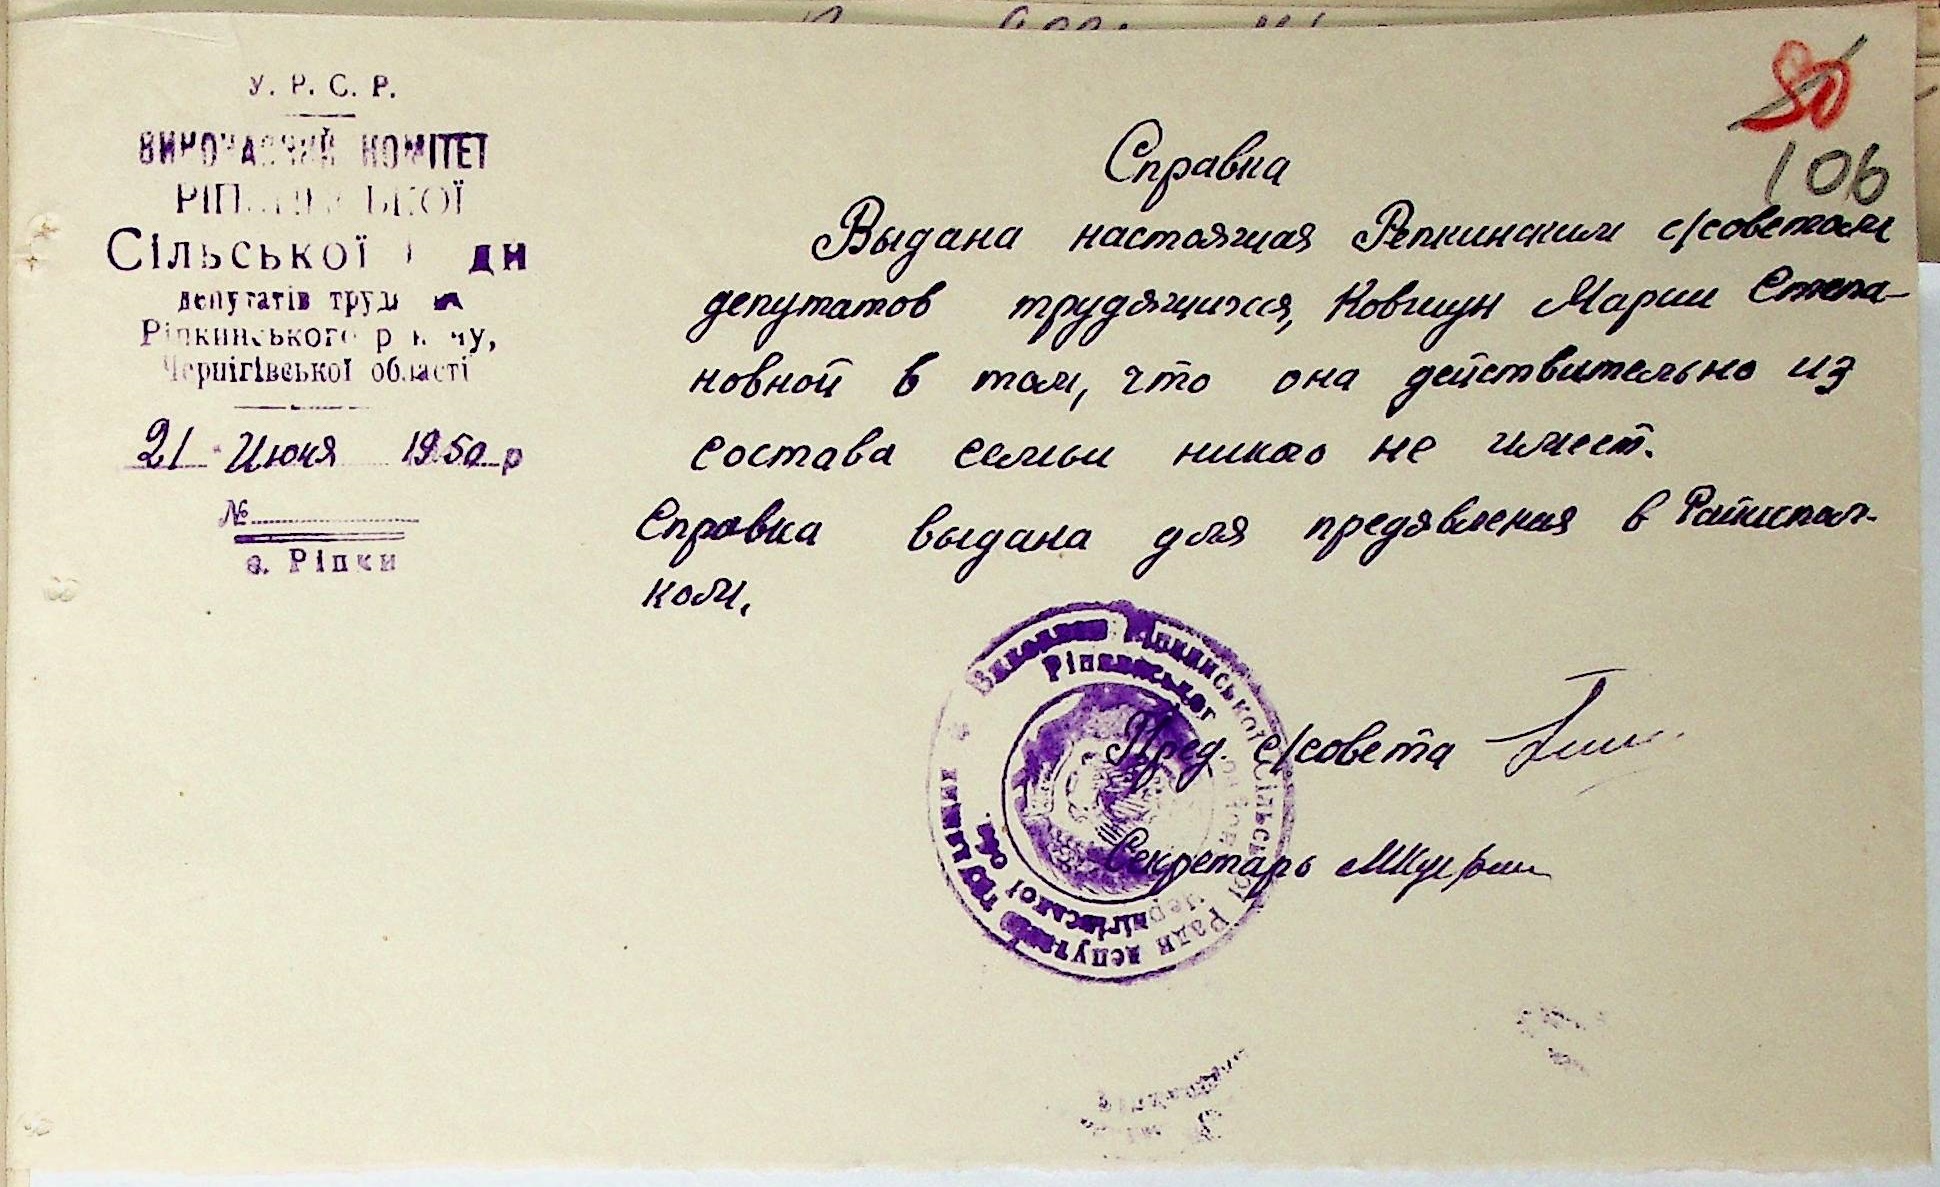 У. Р. С. Р.
ВИКОНАВЧИЙ КОМІТЕТ
РІПКИНСЬКОЇ
Сільської Ради
депутатів трудящих
Ріпкинського р-ну,
Чернігівської області
21 Июня 1950 р
№
с. Ріпки
80
106
Справка
Выдана настоящая Репкинским с/советом
депутатов трудящихся, Ковтун Марии Степа-
новной в том, что она действительно из
состава семьи никого не имеет.
Справка выдана для предявления в Райиспол-
ком.
Пред. с/совета
Секретарь
Виконком Ріпкинської Сільської Ради депутатів трудящих
Ріпкинського району Чернігівської обл.